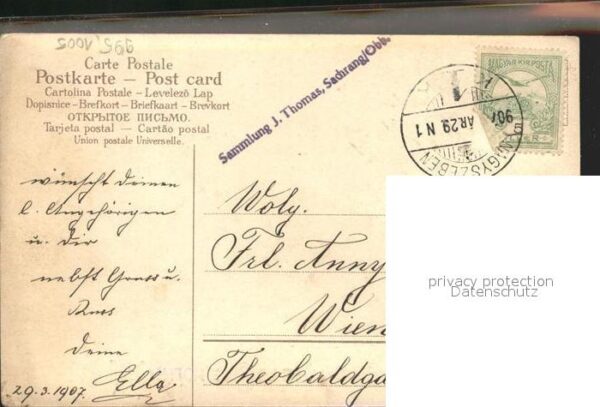 995 1002
Carte Postale
Postkarte — Post card
Cartolina Postale - Levelező Lap
Dopisnice - Brefkort - Briefkaart - Brevkort
ОТКРЫТОЕ ПИСЬМО.
Tarjeta postal — Cartão postal
Union postale Universelle.
Sammlung J. Thomas, Sachrang/Obb.
MAGYAR KIR. POSTA
907 MÁR 29. N 1
NAGYSZEBEN
wünscht deinen
l. Angehörigen
u. dir
nebst Gruss u.
Kuss
deine
Ella
29.3.1907.
Wolg.
Frl. Anny
Wien
Theobaldga
privacy protection
Datenschutz